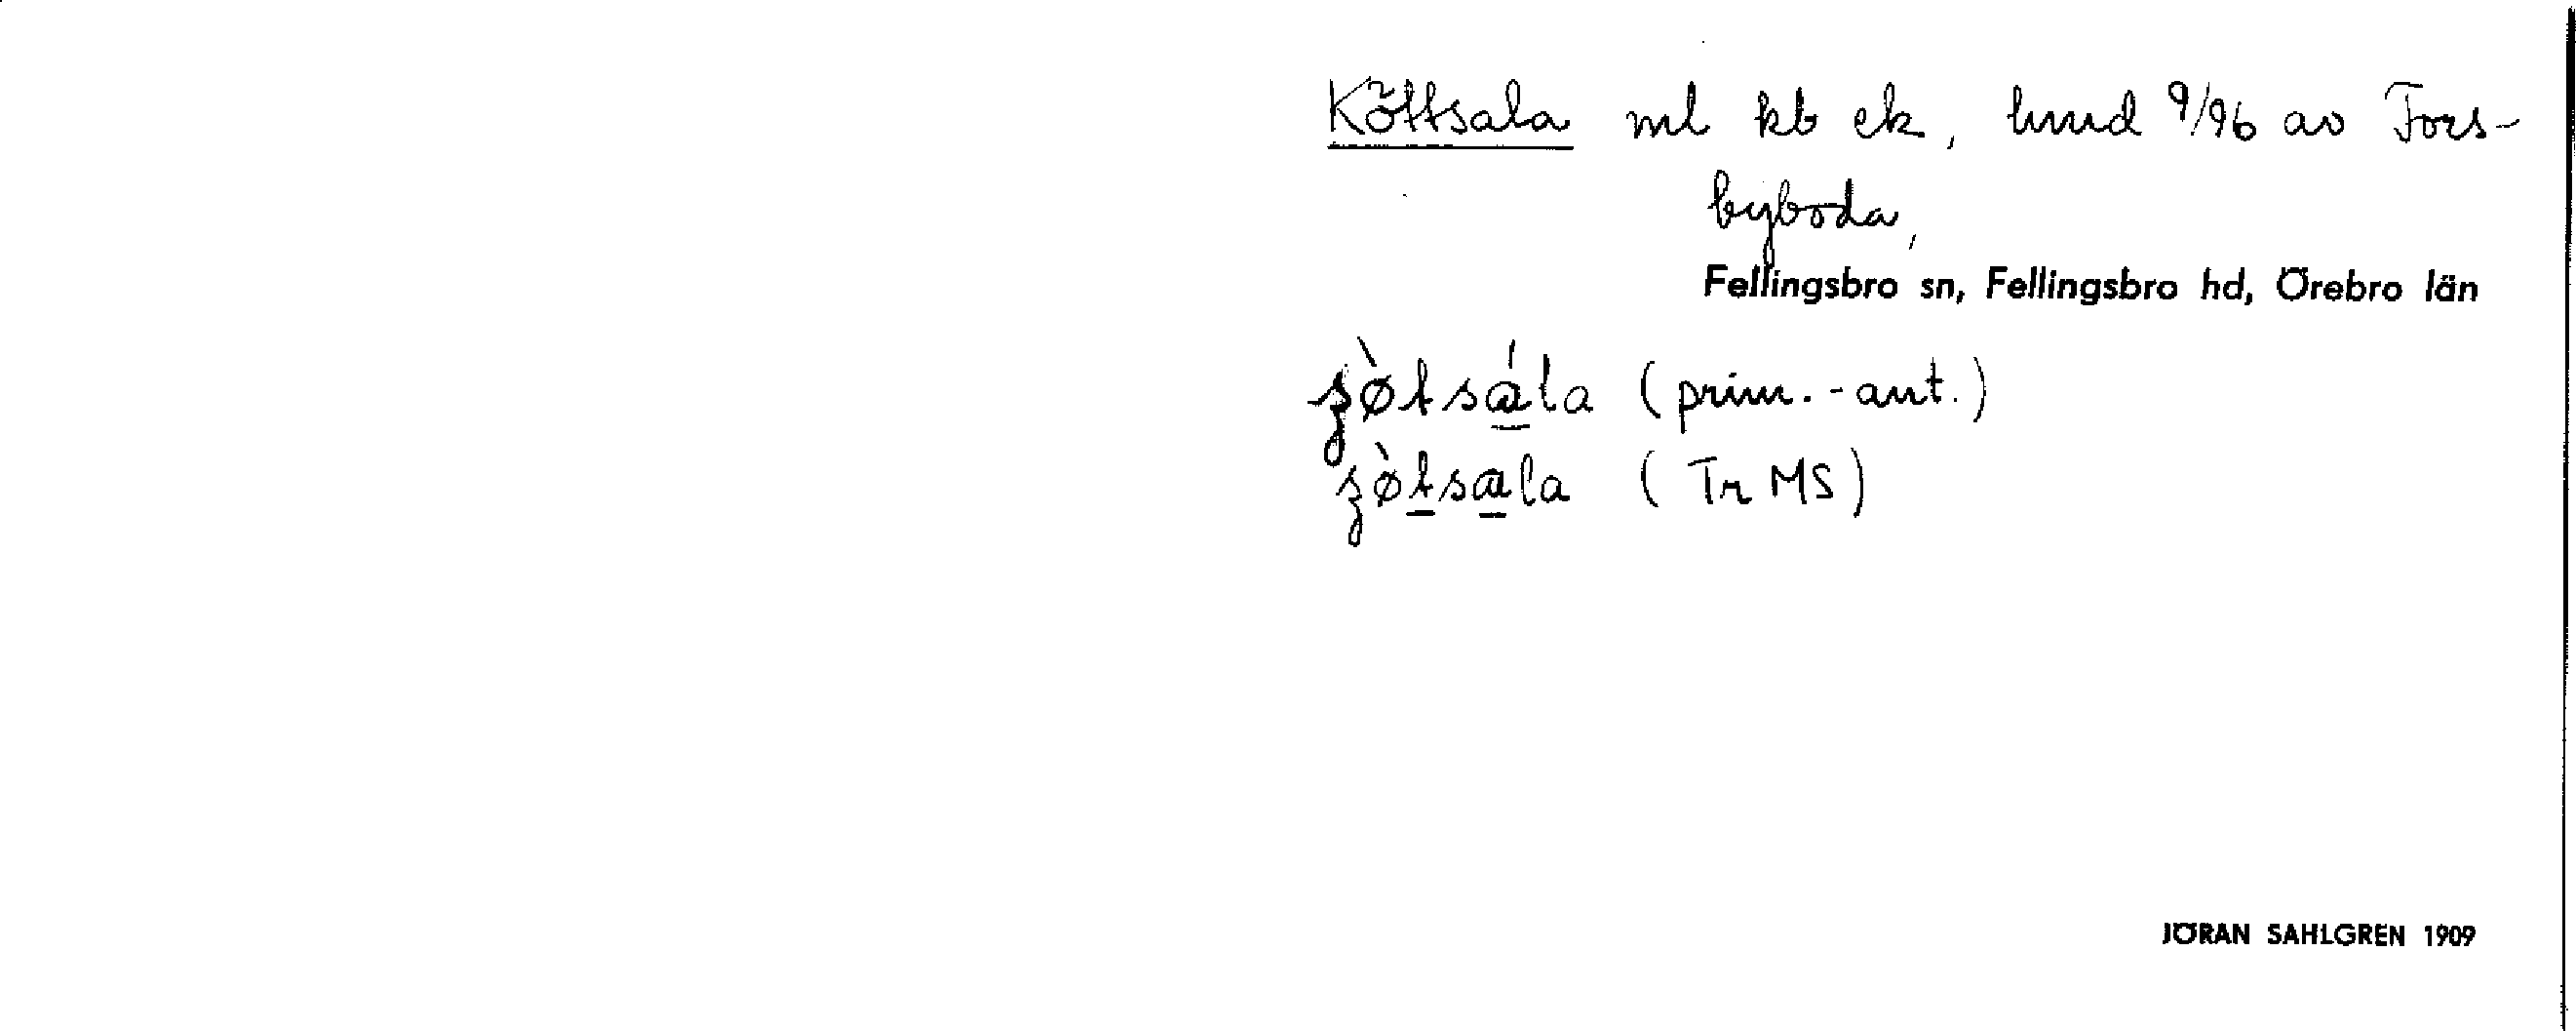 Köttsala ml kb ek, hmd 9/96 av Fors-
byboda,
Fellingsbro sn, Fellingsbro hd, Örebro län
(prim.-ant.)
(Tr MS)
JÖRAN SAHLGREN 1909